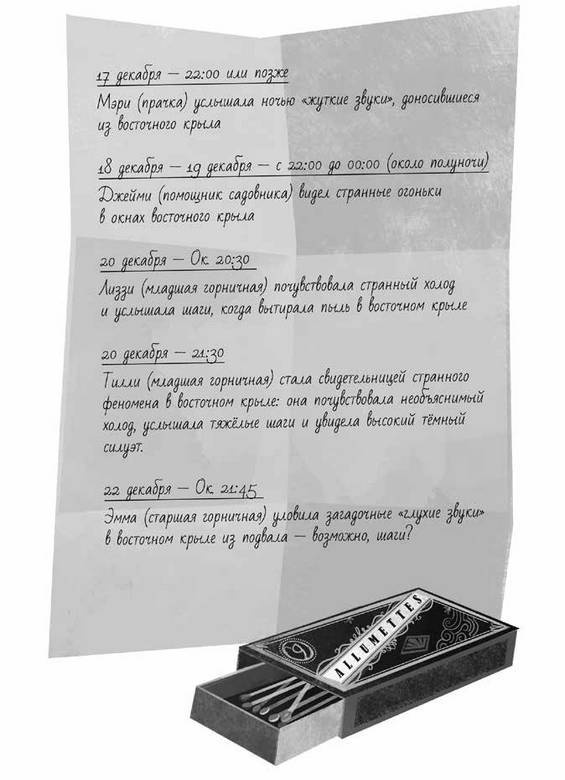 17 декабря — 22:00 или позже
Мэри (прачка) услышала ночью «жуткие звуки», доносившиеся
из восточного крыла
18 декабря — 19 декабря — с 22:00 до 00:00 (около полуночи)
Джейми (помощник садовника) видел странные огоньки
в окнах восточного крыла
20 декабря — Ок. 20:30
Лиззи (младшая горничная) почувствовала странный холод
и услышала шаги, когда вытирала пыль в восточном крыле
20 декабря — 21:30
Тилли (младшая горничная) стала свидетельницей странного
феномена в восточном крыле: она почувствовала необъяснимый
холод, услышала тяжёлые шаги и увидела высокий тёмный
силуэт.
22 декабря — Ок. 21:45
Эмма (старшая горничная) уловила загадочные «глухие звуки»
в восточном крыле из подвала — возможно, шаги?
ALLUMETTES